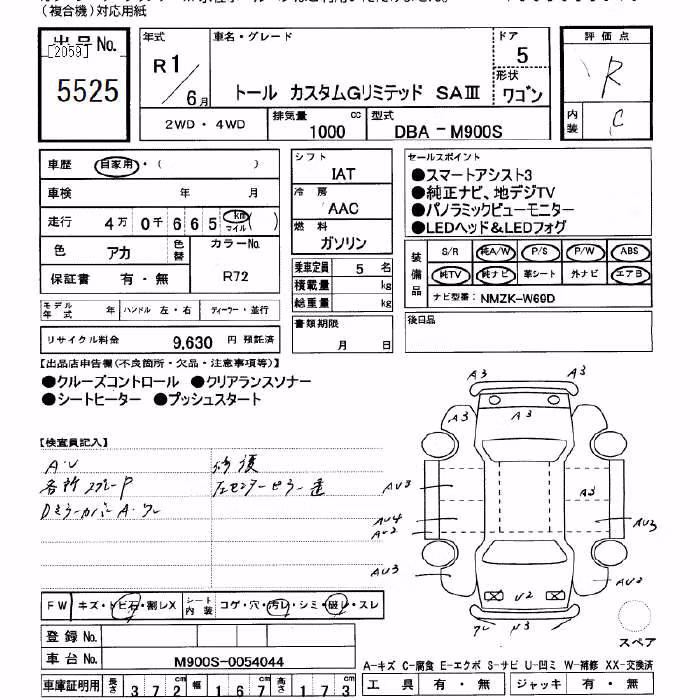 (複合機)対応用紙
出品No.
[2059]
5525
年式
R1/6月
車名・グレード
トール カスタムGリミテッド SAⅢ
ドア
5
形状
ワゴン
評価点
R
内装
C
2WD・4WD
排気量
1000
cc
型式
DBA-M900S
車歴
自家用・( )
車検
年 月
走行
4万 0千 6 6 5 km マイル ( )
色
アカ
色替
カラーNo.
R72
保証書
有・無
モデル年式
年
ハンドル 左・右
ディーラー・並行
リサイクル料金
9,630 円 預託済
シフト
IAT
冷房
AAC
燃料
ガソリン
乗車定員
5 名
積載量
kg
総重量
kg
書類期限
月 日
セールスポイント
●スマートアシスト3
●純正ナビ、地デジTV
●パノラミックビューモニター
●LEDヘッド&LEDフォグ
装備品
S/R 純A/W P/S P/W ABS
純TV 純ナビ 革シート 外ナビ エアB
ナビ型番: NMZK-W69D
後日品
【出品店申告欄(不良箇所・欠品・注意事項等)】
●クルーズコントロール ●クリアランスソナー
●シートヒーター ●プッシュスタート
【検査員記入】
A・U
各所スプレーP
DミラーカバーA・ワレ
修復
左センターピラー歪
FW
キズ・トビ石・割レX
シート内装
コゲ・穴・汚レ・シミ・破レ・スレ
登録No.
車台No.
M900S-0054044
車庫証明用
長さ
3 7 2
幅
1 6 7
高さ
1 7 3
A3
A3
A3
A3
A3
AU3
A3
AU4
A2
AU3
AU3
AU2
U2
ワレ
U3
スペア
A-キズ C-腐食 E-エクボ S-サビ U-凹ミ W-補修 XX-交換済
工具
有・無
ジャッキ
有・無